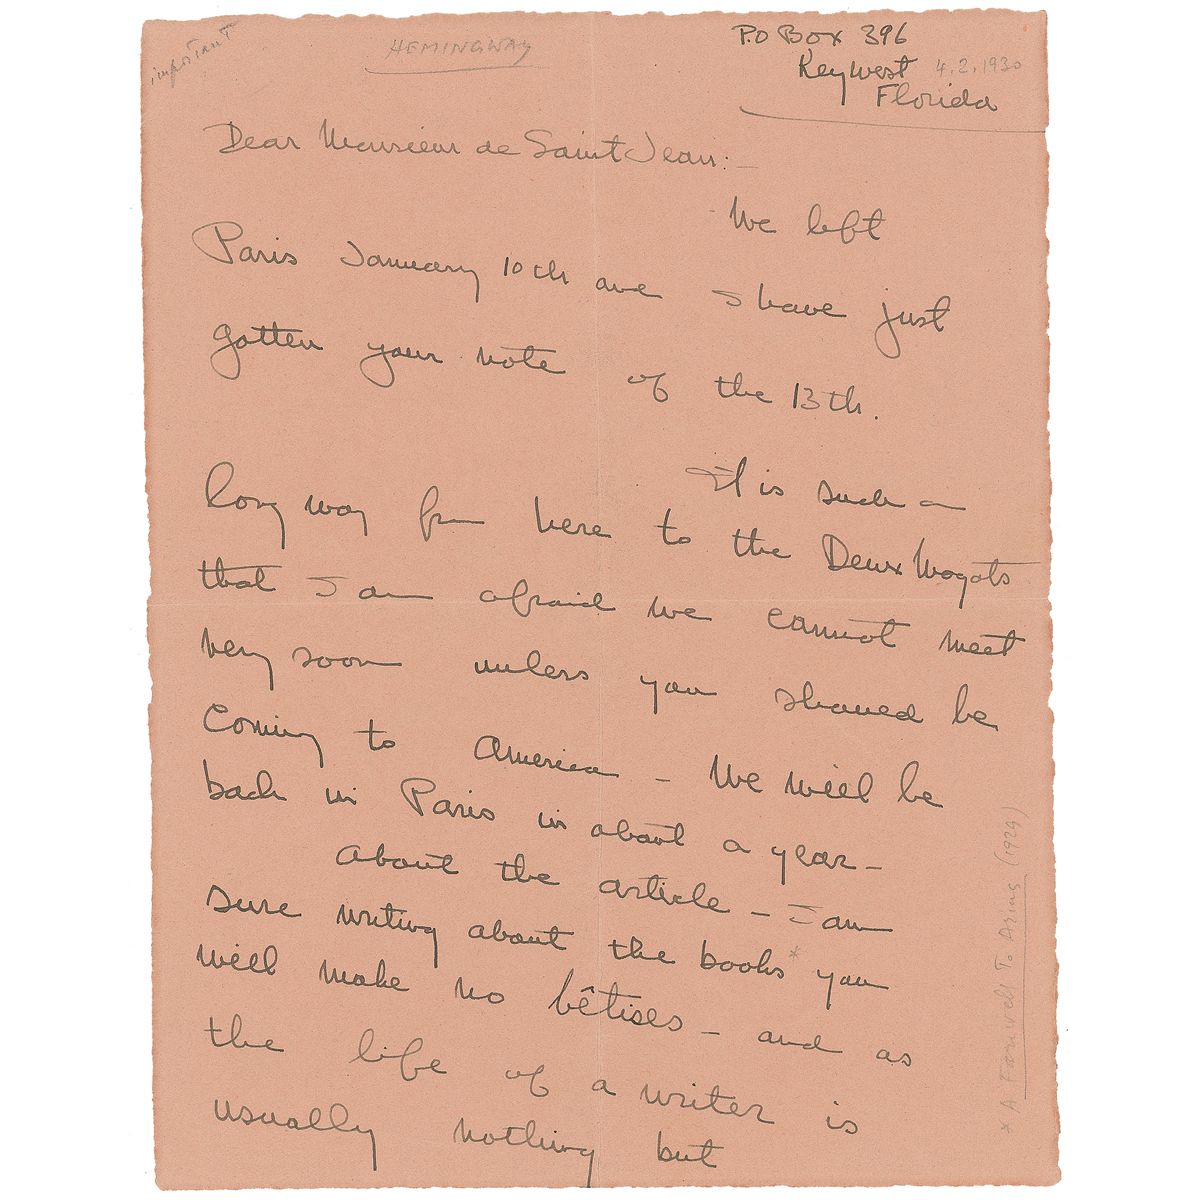 important
HEMINGWAY
P.O Box 396
Key West
4.2.1930
Florida
Dear Monsieur de Saint Jean:—
We left
Paris January 10th and I have just
gotten your note of the 13th.
It is such a
long way from here to the Deux Magots
that I am afraid we cannot meet
very soon unless you should be
coming to America — We will be
back in Paris in about a year —
About the article — I am
sure writing about the books* you
will make no bêtises — and as
the life of a writer is
usually nothing but
* A Farewell To Arms (1929)